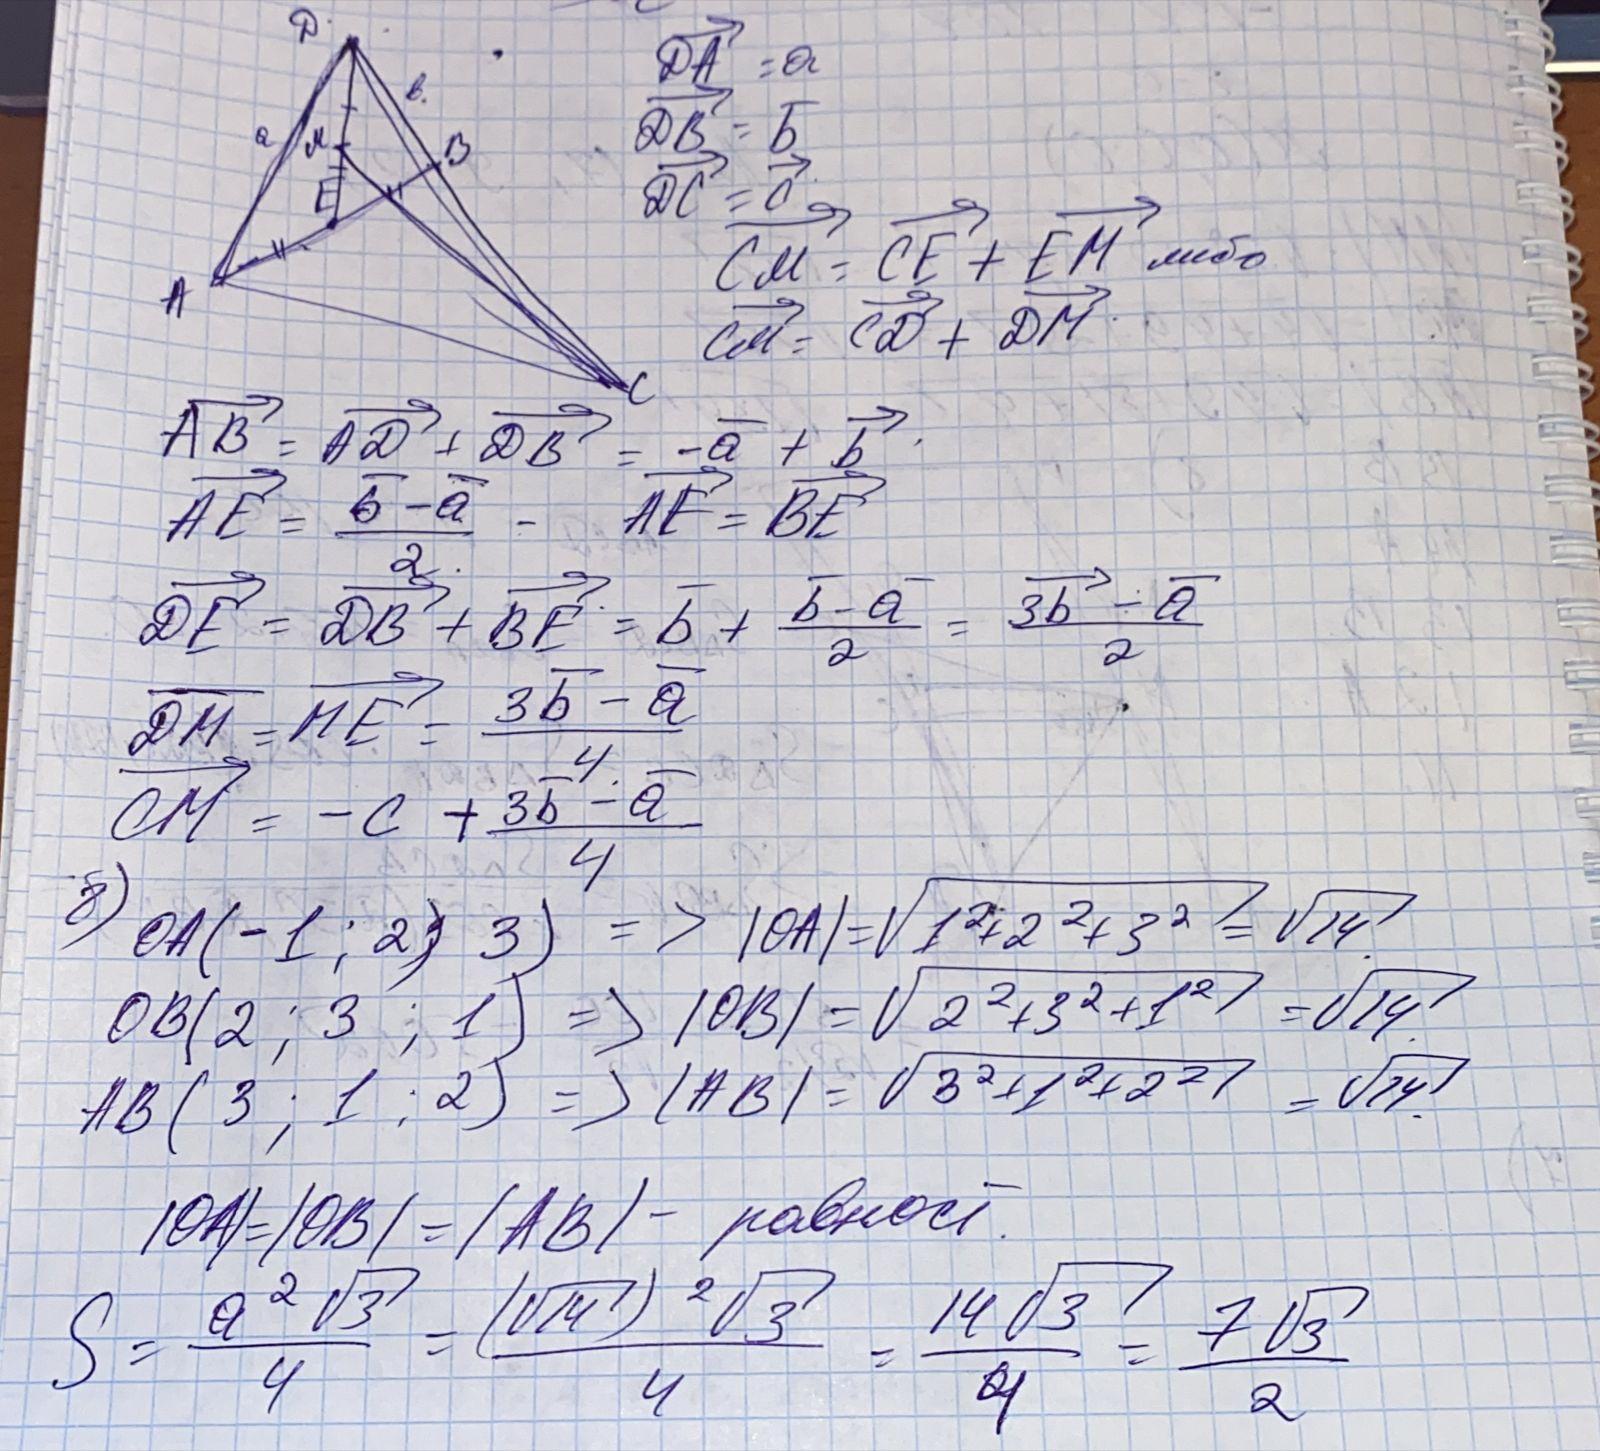 D
B
a
M
B
E
A
C
DA = a
DB = b
DC = c
CM = CE + EM либо
CM = CD + DM
AB = AD + DB = -a + b
AE = (b - a)/2 - AE = BE
DE = DB + BE = b + (b - a)/2 = (3b - a)/2
DM = ME = (3b - a)/4
CM = -c + (3b - a)/4
OA(-1; 2; 3) => |OA| = √(1²+2²+3²) = √14
OB(2; 3; 1) => |OB| = √(2²+3²+1²) = √14
AB(3; 1; 2) => |AB| = √(3²+1²+2²) = √14
|OA| = |OB| = |AB| - равност.
S = a²√3/4 = (√14)²√3/4 = 14√3/4 = 7√3/2